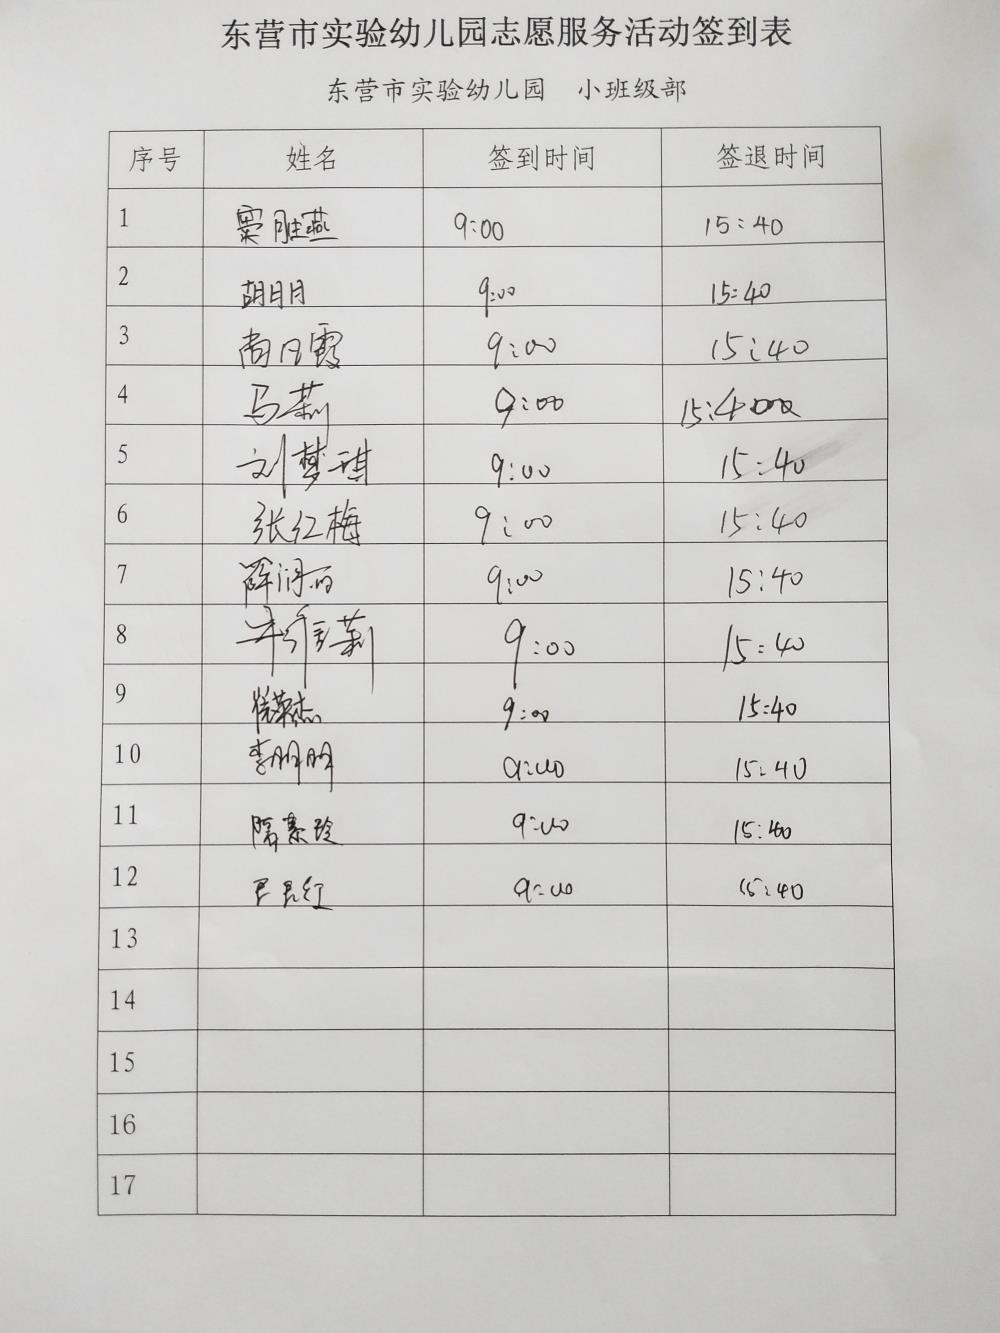 东营市实验幼儿园志愿服务活动签到表
东营市实验幼儿园 小班级部
序号 姓名 签到时间 签退时间
1 窦胜燕 9:00 15:40
2 胡明月 9:00 15:40
3 尚凡霞 9:00 15:40
4 马莉 9:00 15:40
5 刘梦琪 9:00 15:40
6 张红梅 9:00 15:40
7 薛润 9:00 15:40
8 莉 9:00 15:40
9 崔荣杰 9:00 15:40
10 李朋朋 9:00 15:40
11 隋素玲 9:00 15:40
12 红 9:00 15:40
13
14
15
16
17